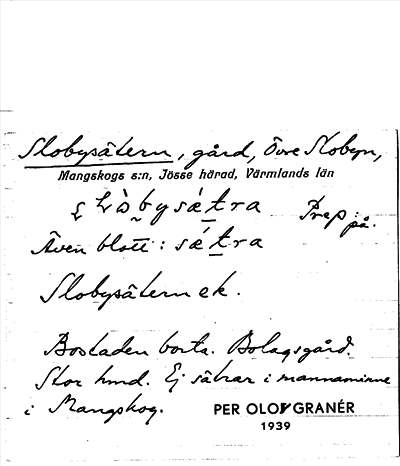 Slobysätern, gård, Övre Slobyn,
Mangskogs s:n, Jösse härad, Värmlands län
Prep: på.
Även blott: sǽtra
Slobysätern ek.
Bostaden borta. Bolagsgård.
Stor hmd. Ej sätrar i mannaminne
i Mangskog.
PER OLOF GRANÉR
1939